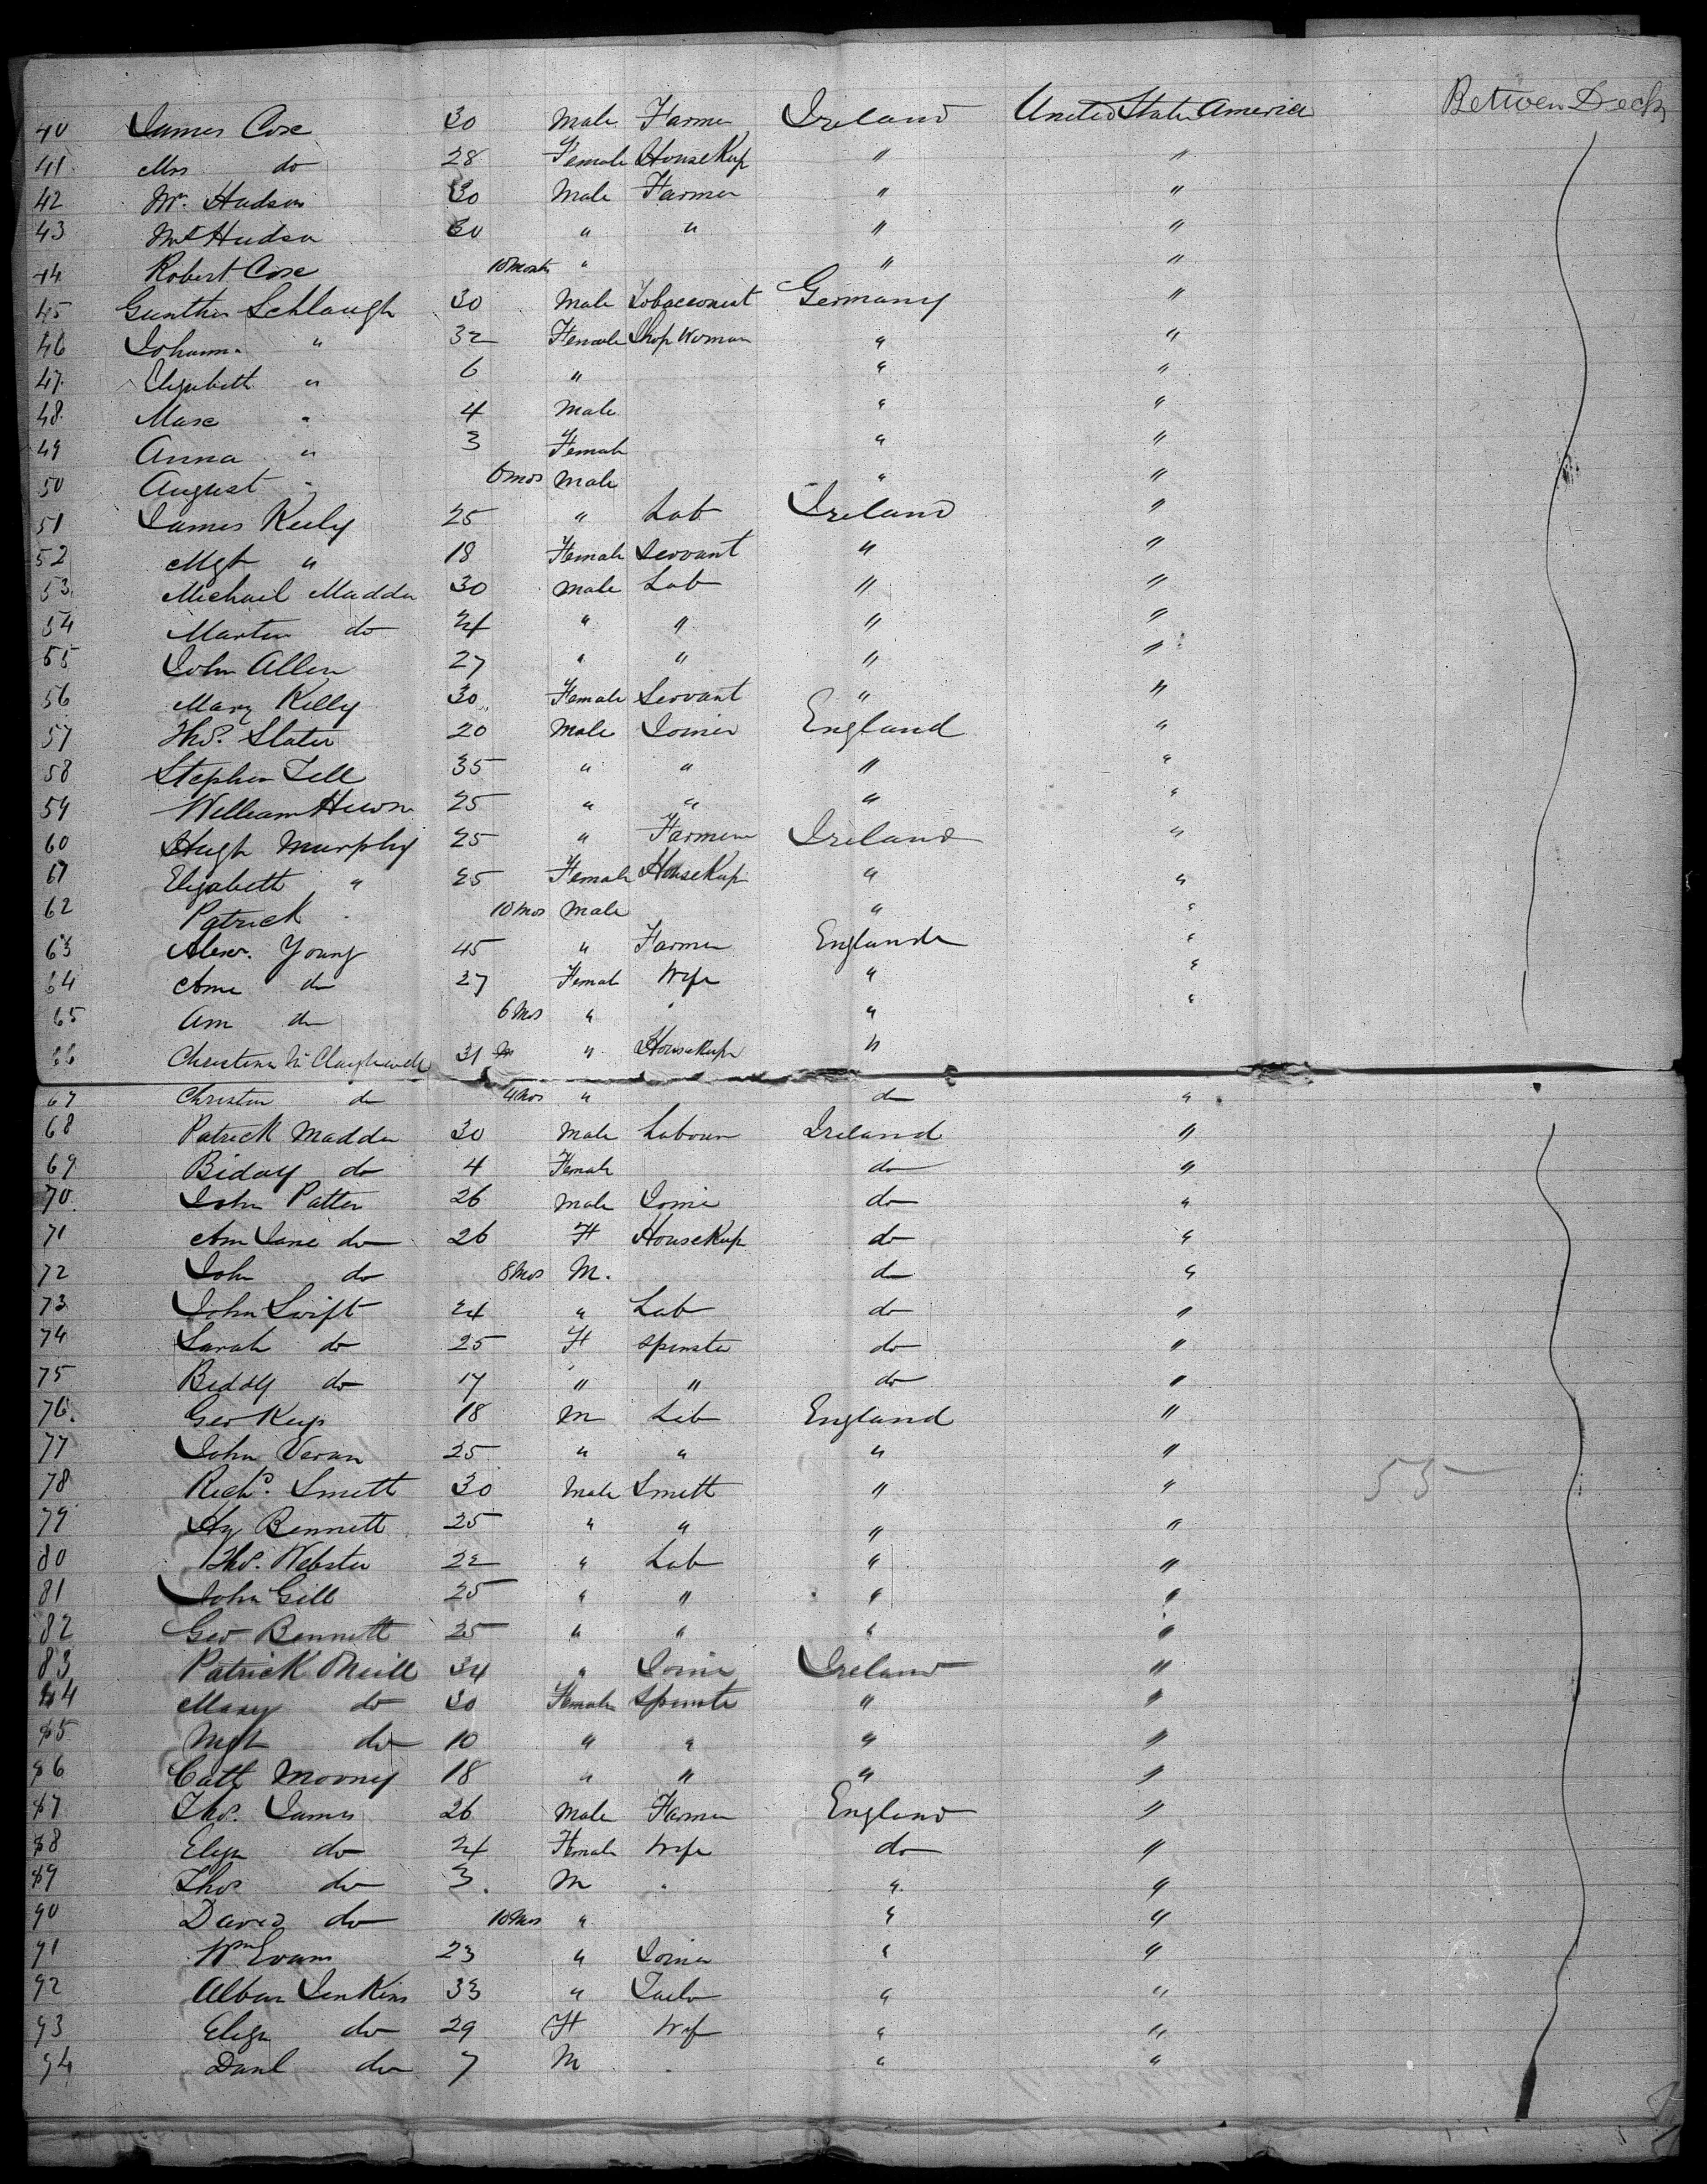 Betwen Decks
40 James Coxe 30 Male Farmer Ireland United State America
41 Mrs do 28 Female HouseKeep " "
42 Mr. Hudson 30 Male Farmer " "
43 Hudson 30 " " " "
44 Robert Coxe 10 Months " " "
45 Gunther Schlaugh 30 Male Tobacconist Germany "
46 Johann " 32 Female Shop Woman " "
47 Elizabeth " 6 " " "
48 Maxe " 4 Male " "
49 Anna " 3 Female " "
50 August " 6 mos Male " "
51 James Keely 25 " Lab Ireland "
52 Mgt " 18 Female Servant " "
53 Michael Madden 30 Male Lab " "
54 Martin do 24 " " " "
55 John Allen 27 " " " "
56 Mary Kelly 30 Female Servant " "
57 Thos. Slater 20 Male Joiner England "
58 Stephen Tell 35 " " " "
59 William 25 " " " "
60 Hugh Murphy 25 " Farmer Ireland "
61 Elizabeth " 25 Female HouseKeep " "
62 Patrick " 10 mos Male " "
63 Alexr. Young 45 " Farmer England "
64 Ame do 27 Female Wife " "
65 Am do 6 Mos " " " "
66 Christina 31 " HouseKeepr "
67 Christin do 4 Mos " do "
68 Patrick Madden 30 Male Labour Ireland "
69 Biddy do 4 Female do "
70 John Patten 26 Male Joiner do "
71 Ann Jane do 26 F HouseKeep do "
72 John do 8 Mos M. do "
73 John Swift 24 " Lab do "
74 Sarah do 25 F Spinster do "
75 Biddy do 17 " " do "
76 Geo Keep 18 M Lab England "
77 John Veran 25 " " " "
78 Richd. Smett 30 Male Smett " "
79 Hy Bennett 25 " " " "
80 Thos. Webster 22 " Lab " "
81 John Gill 25 " " " "
82 Geo Bennett 25 " " " "
83 Patrick ONeill 34 " Joiner Ireland "
84 Mary do 30 Female Spinster " "
85 Mgt do 10 " " " "
86 Cath Mooney 18 " " " "
87 Thos. James 26 Male Farmer England "
88 Eliza do 24 Female Wife do "
89 Thos do 3 M " "
90 David do 10 Mos " " "
91 Wm Evans 23 " Joiner " "
92 Alban Jenkins 33 " Tailor " "
93 Eliza do 29 F Wife " "
94 Danl do 7 M " "
55